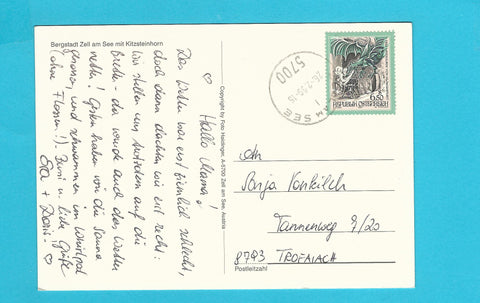 Bergstadt Zell am See mit Kitzsteinhorn
♡ Hallo Mama!
Das Wetter war erst ziemlich schlecht,
doch dann dachten wir erst recht:
Wir stellen uns trotzdem auf die
Bretter - da wurde auch das Wetter
netter! Gestern haben wir die Sauna
genossen, und schwammen im Whirlpool
(ohne Flossen!). - Bussi u. liebe Grüße
Eva + Doris ♡
Copyright by Foto Haidinger, A-5700 Zell am See, Austria
5700
AM SEE
REPUBLIK ÖSTERREICH
An
Sonja
Tannenweg 9/20
8793 TROFAIACH
Postleitzahl